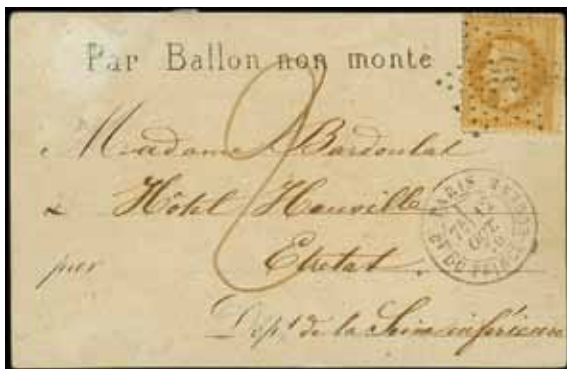 Par Ballon non monté
Madame Bardoulat
à Hôtel Hauville
par Etretat
Dépt de la Seine inférieure
PARIS
OCT.